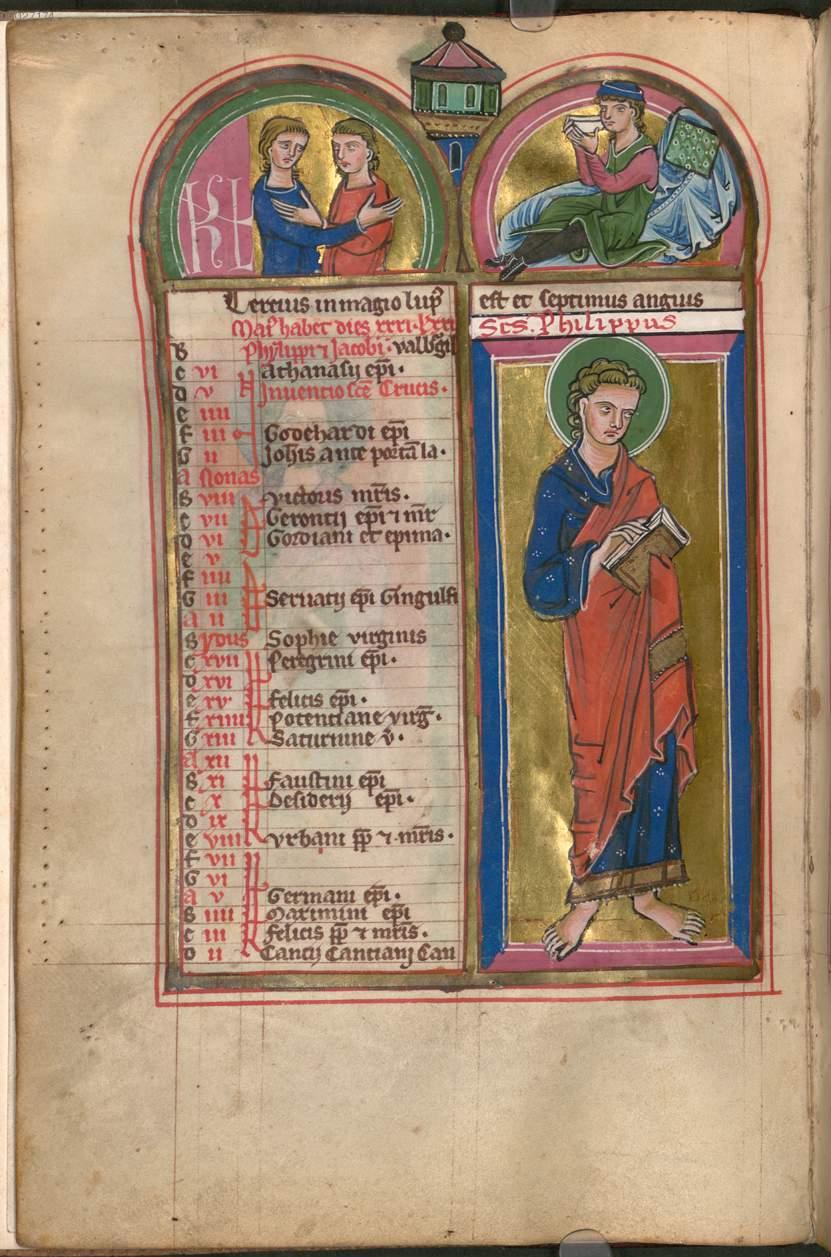 KL
Tercius in magio lup9
Mai9 habet dies xxxi. l xxx
B Phylippi ⁊ Jacobi. valbgi
c vi Athanasii epi.
d v Inuentio sce Crucis.
e iiii
f iii Godehardi epi
G ii Johis ante porta la.
a Nonas
B viii Victoris mris.
c vii Gerontij epi ⁊ mr
d vi Gordiani et epima.
e v
f iiii
G iii Seruatij epi Gingulfi
a ii
B ydus Sophie virginis
c xvii Peregrini epi.
d xvi
e xv felicis epi.
f xiiii Potenciane virg.
G xiii Saturnine v.
a xii
B xi Faustini epi
c x Desiderij epi.
d ix
e viii vrbani pp ⁊ mris.
f vii
G vi
a v Germani epi.
B iiii Maximini epi
c iii felicis pp ⁊ mris.
d ii Cancij Cancianj Can
est et septimus angius
Scs. Philippus